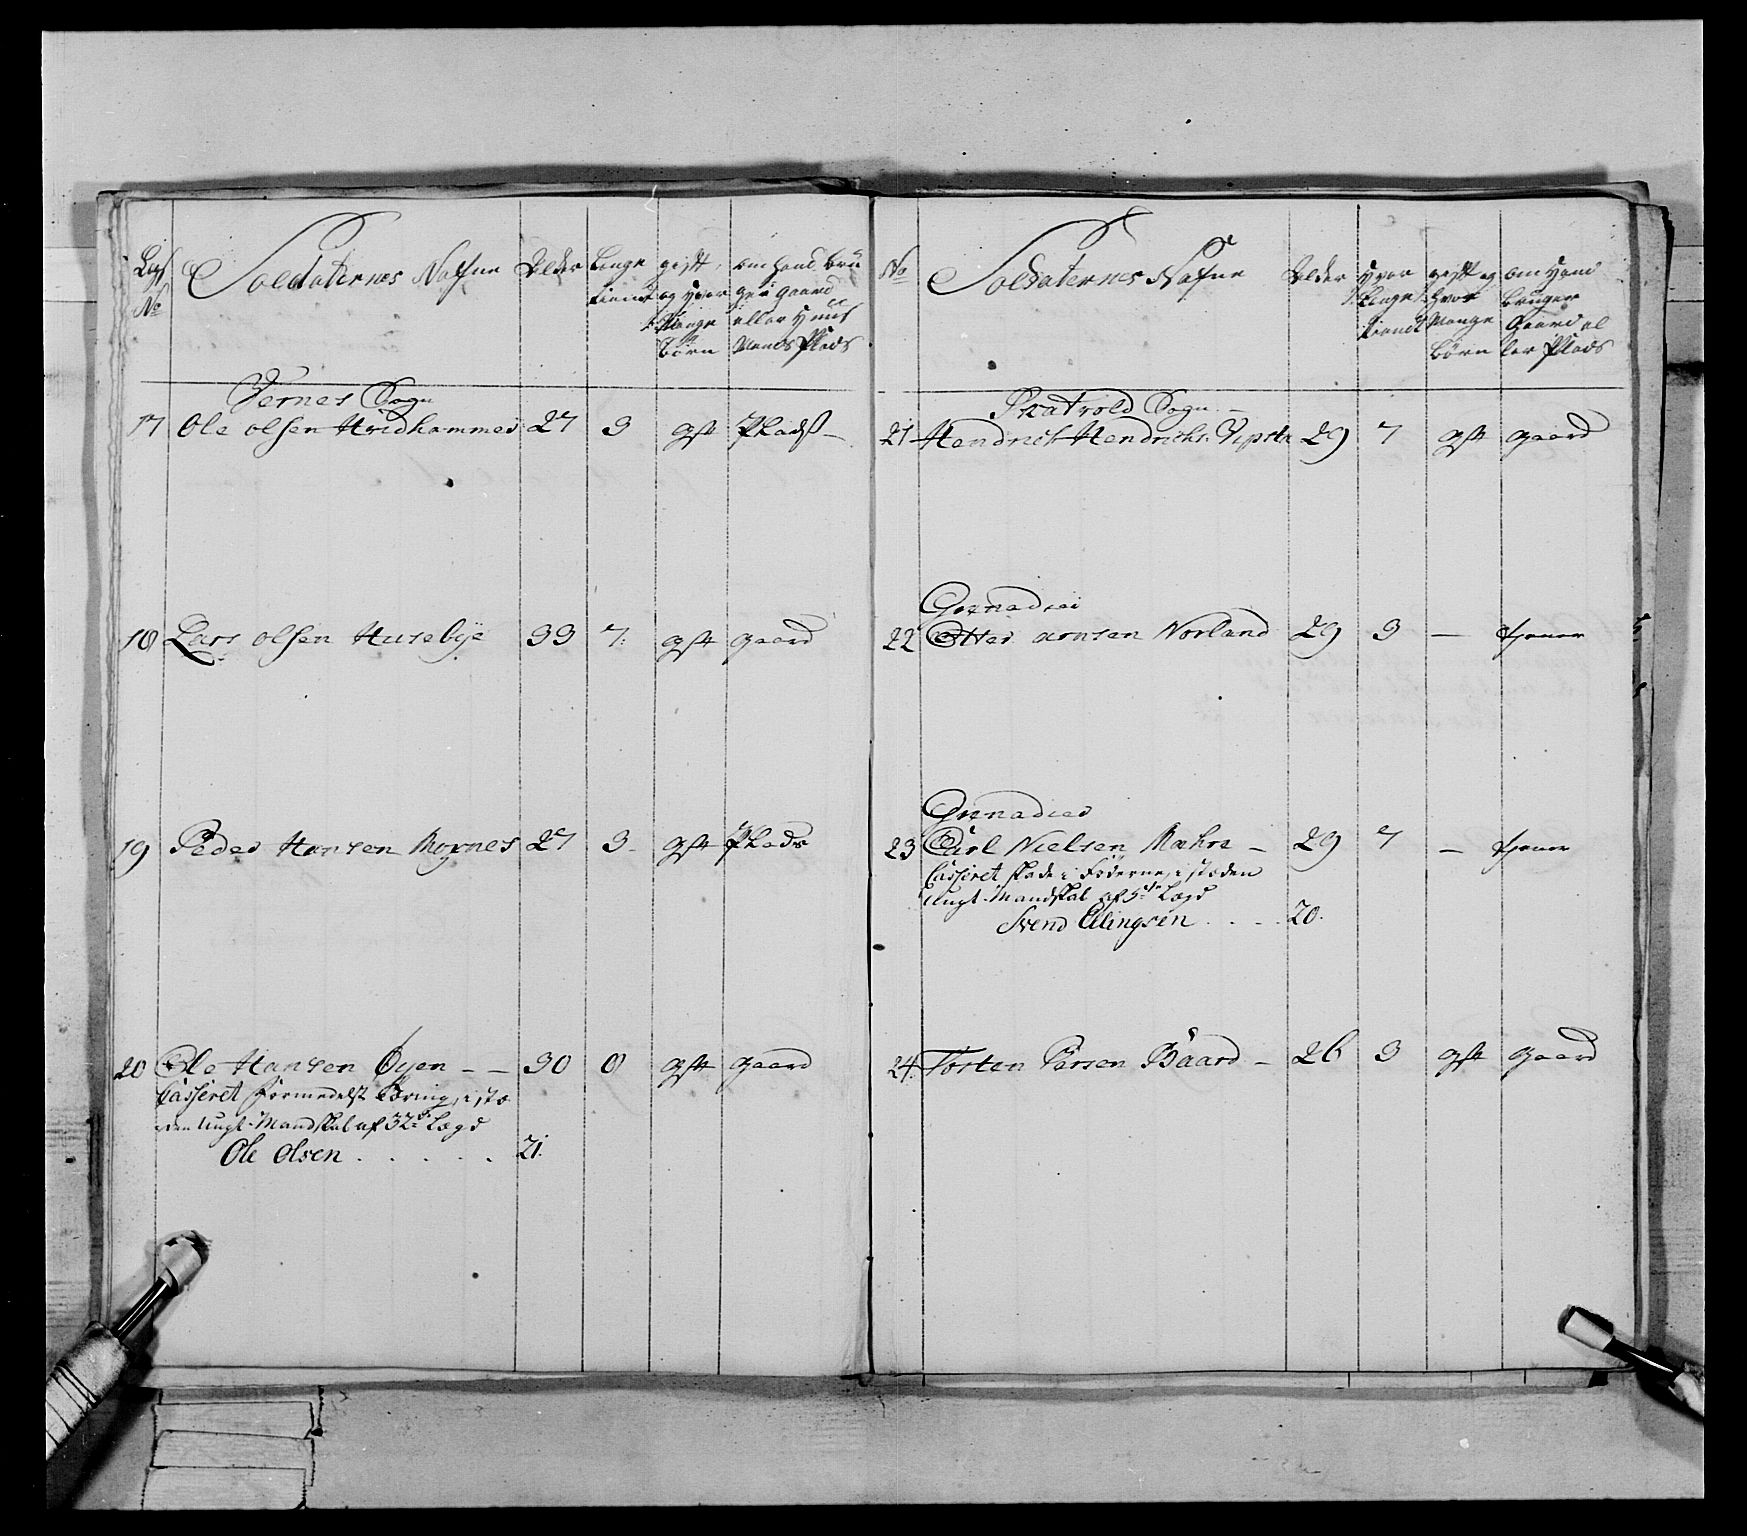 Legd No
Soldaternes Nafne
Alder
Længe tient
gift, og hvor Mange Børn
om hand bruger gaard eller Huus Mands Plads
Vernes Sogn
17 Ole Olsen Hvidhammer 27 3 gft Plads
18 Lars Olsen Husebye 33 7: gft gaard
19 Peder Hansen Mognes 27 3 gft Plads
20 Ole Hansen Øyen 30 8 gft gaard
Casseret formedelst Tæring, i stæ
den Ungt Mandskab af 32de Lægd
Ole Olsen 21.
No
Soldaternes Nafne
Alder
hvor Længe tiendt
gift og hvor Mange Børn
om hand bruger Gaard eller Plads
Skatvold Sogn
21 Hendrich Hendrichs. 29 7 gft gaard
Grenadier
22 Otter Arnsen Norland 29 3 — tjener
Grenadier
23 Carl Nielsen Mæhre — 29 7 — tjener
Casseret skade i Föderne, i stæden
Ungt Mandskab af 5te Lægd
Svend Ellingsen 20.
24. Tosten Persen Baard — 26 3 gft gaard